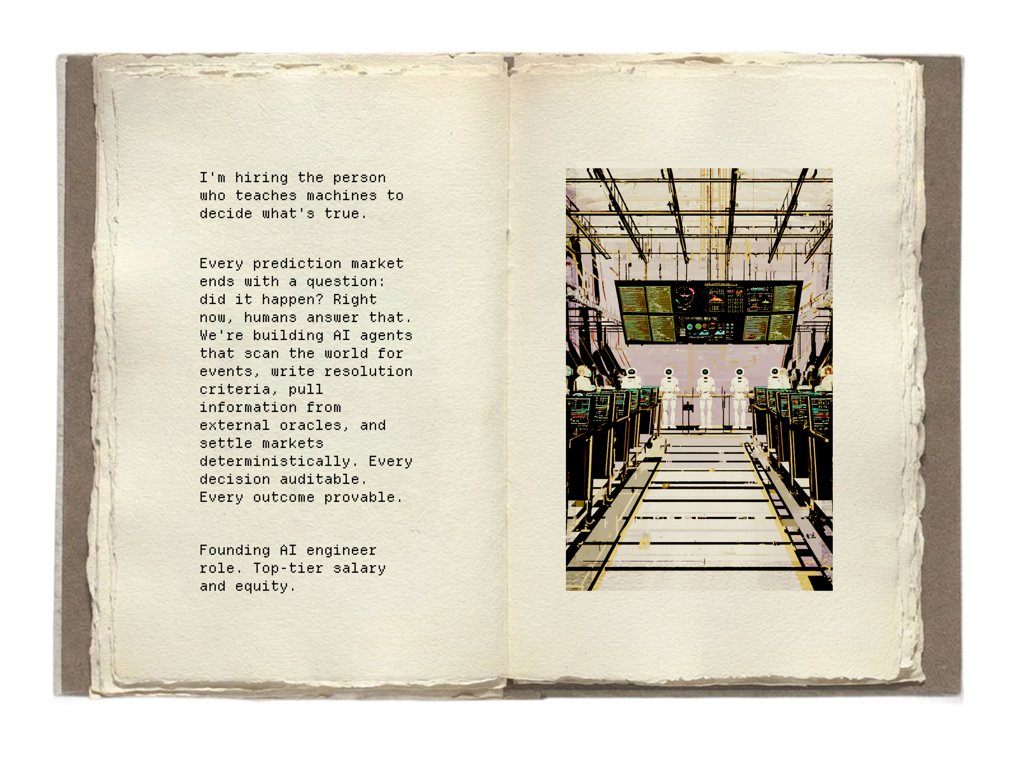 I'm hiring the person
who teaches machines to
decide what's true.
Every prediction market
ends with a question:
did it happen? Right
now, humans answer that.
We're building AI agents
that scan the world for
events, write resolution
criteria, pull
information from
external oracles, and
settle markets
deterministically. Every
decision auditable.
Every outcome provable.
Founding AI engineer
role. Top-tier salary
and equity.